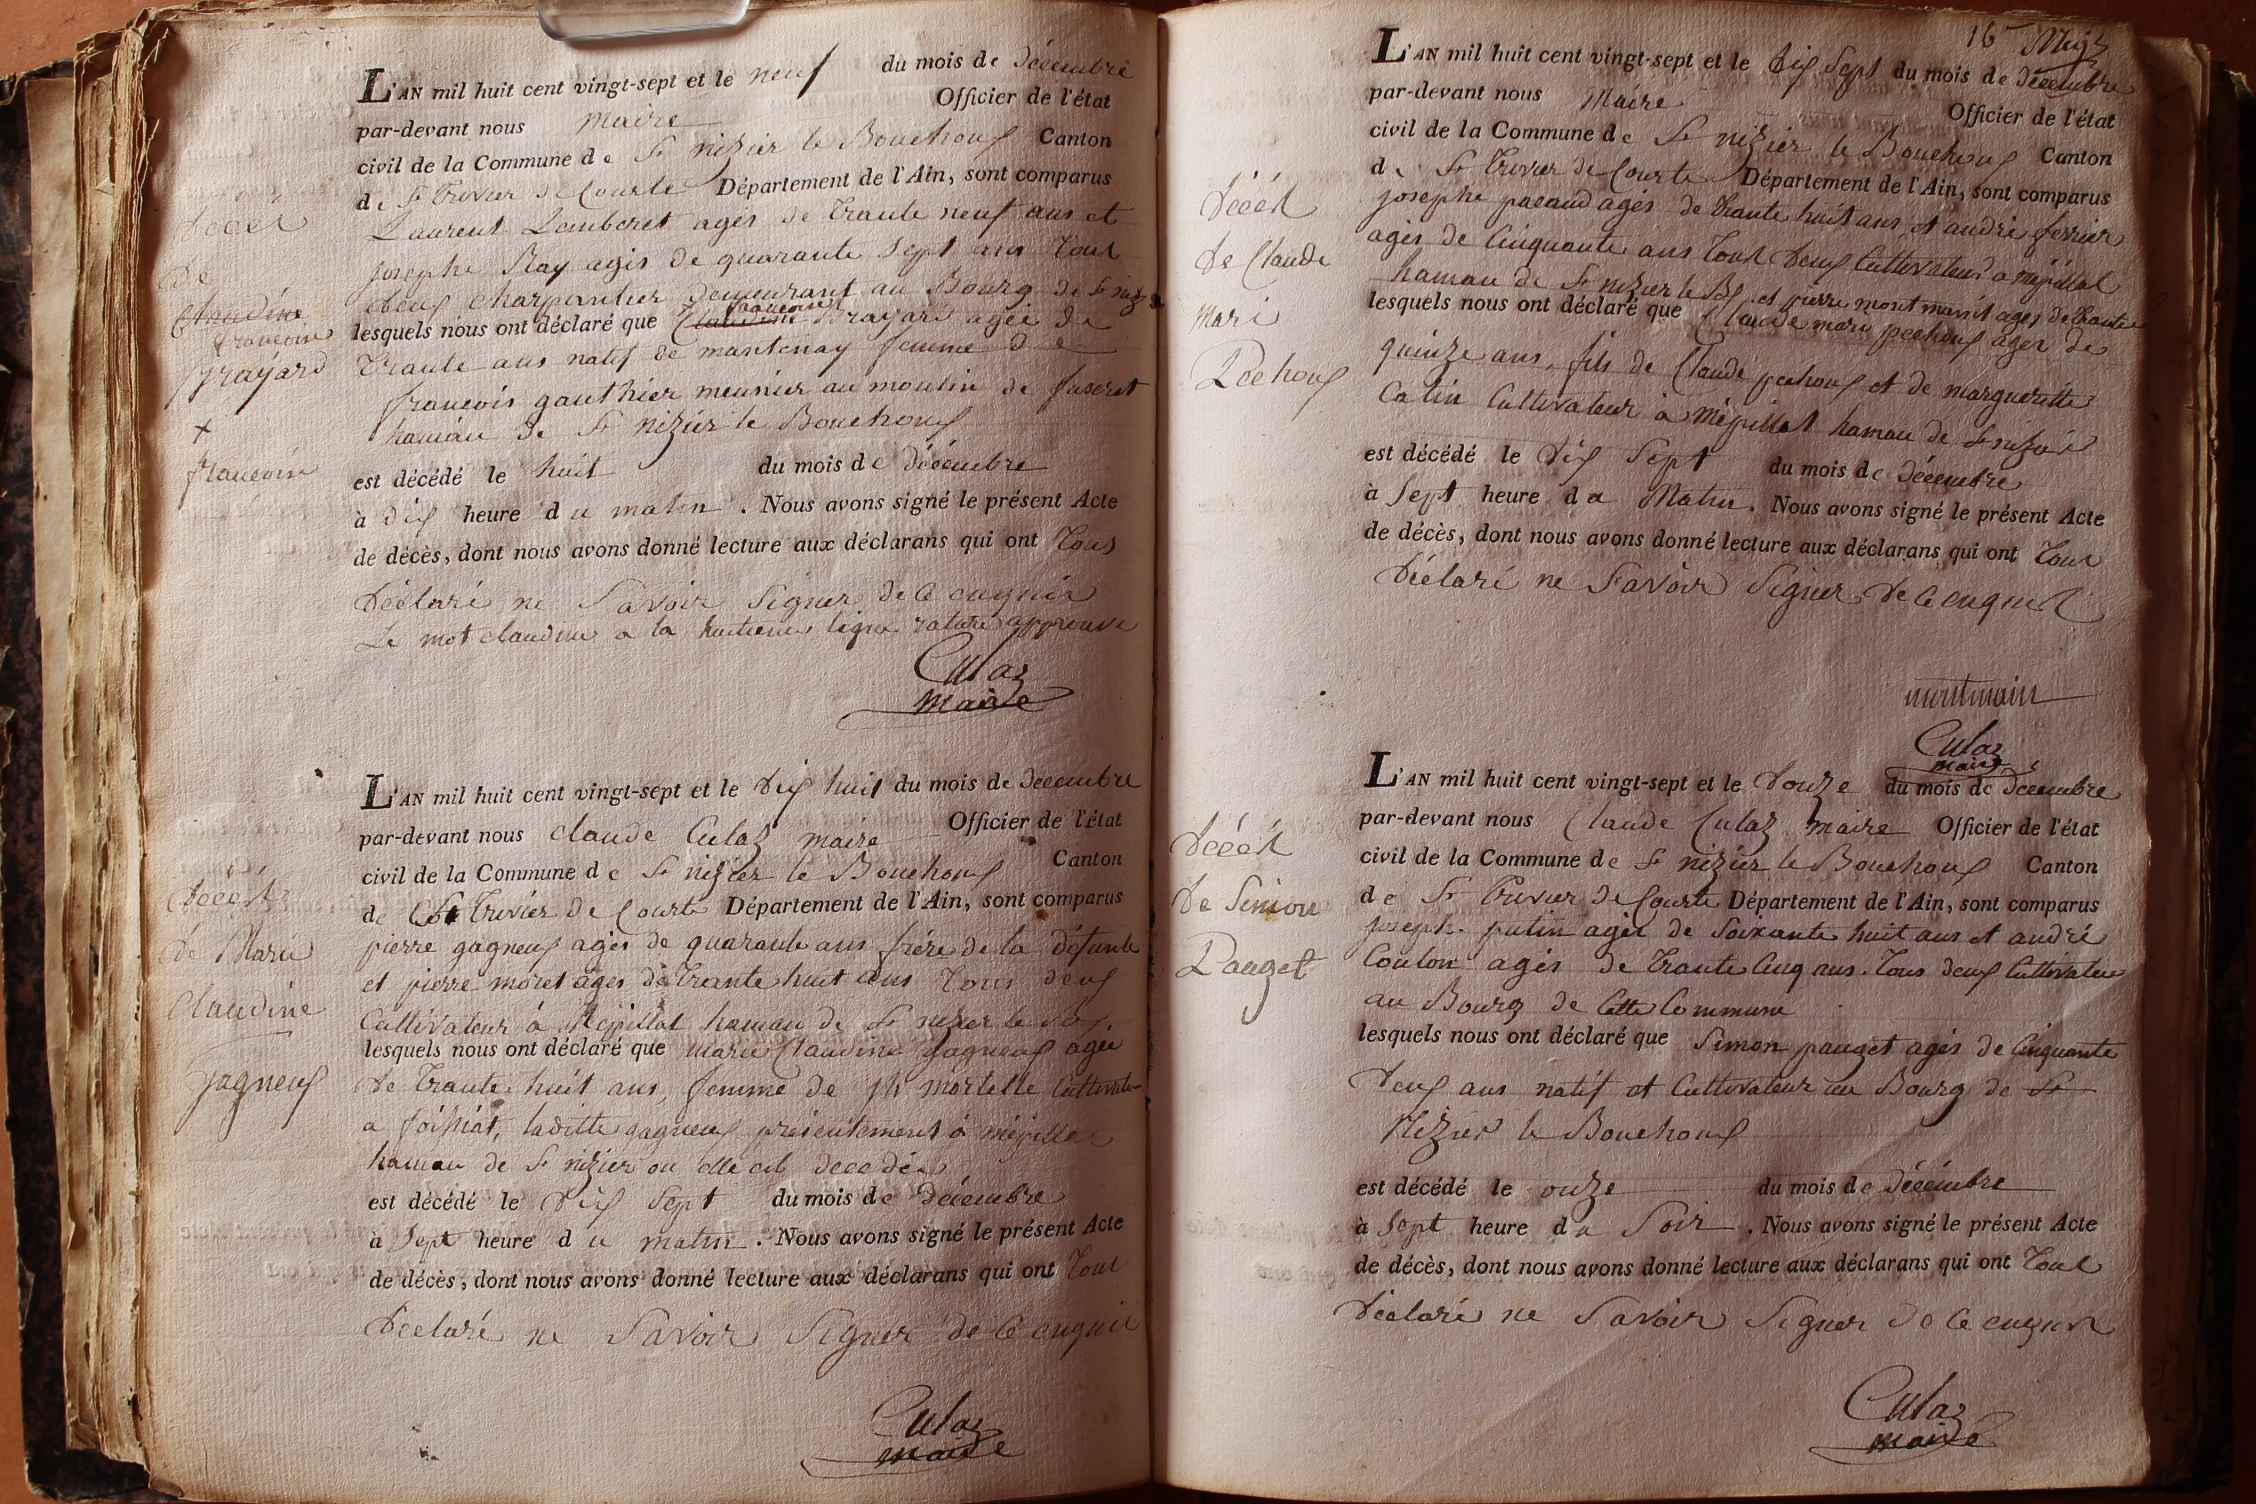 L'AN mil huit cent vingt-sept et le neuf du mois de décembre
par-devant nous maire Officier de l'état
civil de la Commune de St nizier le Bouchoux Canton
de St Trivier de Courte Département de l'Ain, sont comparus
Laurent Lambert agés de trante neuf ans et
josephe Ray agés de quarante sept ans tout
deux charpentier demeurant au Bourg de St
françoise
lesquels nous ont déclaré que Claudine Brayard agée de
trante ans natif de mantenay femme de
françois gauthier meunier au moulin de
hamau de St nizier le Bouchoux
est décédé le huit du mois de décembre
à dix heure du matin. Nous avons signé le présent Acte
de décès, dont nous avons donné lecture aux déclarans qui ont tous
déclaré ne savoir signer de ce enquis
Le mot claudine a la huitieme ligne raturé approuvé
Culaz
maire
décès
de
Claudine
françoise
Brayard
+
françoise
L'AN mil huit cent vingt-sept et le dix huit du mois de decembre
par-devant nous claude Culaz maire Officier de l'état
civil de la Commune de St nizier le Bouchoux Canton
de St Trivier de Courte Département de l'Ain, sont comparus
pierre gagneux agés de quarante ans frére de la défunte
et pierre moret agés de trante huit ans tous deux
Cultivateur á Mépillat hamau de St nizier le
lesquels nous ont déclaré que marie Claudine gagneux agée
de trante huit ans, femme de jh mortelle Cultivate
a foissiat, laditte gagneux présentement á mépillat
hamau de St nizier ou elle est decedée
est décédé le dix sept du mois de décembre
à sept heure du matin. Nous avons signé le présent Acte
de décès, dont nous avons donné lecture aux déclarans qui ont tout
déclaré ne savoir signer de ce enquis
Culaz
maire
décès
de Marie
Claudine
gagneux
16
L'AN mil huit cent vingt-sept et le dix sept du mois de décembre
par-devant nous maire Officier de l'état
civil de la Commune de St nizier le Bouchoux Canton
de St Trivier de Courte Département de l'Ain, sont comparus
josephe pacaud agés de trante huit ans, et andré ferrier
agés de Cinquante ans tout deux Cultivateur a mépillat
hamau de St nizier le Bx et pierre montmain agés de trante
lesquels nous ont déclaré que Claude mari pechoux agés de
quinze ans, fils de Claude pechoux et de margueritte
Catin Cultivateur à Mépillat hamau de St nizier
est décédé le dix sept du mois de décembre
à sept heure du Matin. Nous avons signé le présent Acte
de décès, dont nous avons donné lecture aux déclarans qui ont tout
déclaré ne savoir signer de ce enquis
montmain
Culaz
maire
décès
de Claude
Mari
Pechoux
L'AN mil huit cent vingt-sept et le douze du mois de decembre
par-devant nous Claude Culaz maire Officier de l'état
civil de la Commune de St nizier le Bouchoux Canton
de St Trivier de Courte Département de l'Ain, sont comparus
joseph putin agés de soixante huit ans et andré
Coulon agés de trante Cinq ans. tous deux Cultivateur
au Bourg de Cette Commune
lesquels nous ont déclaré que Simon pauget agés de Cinquante
deux ans natif et Cultivateur au Bourg de St
Nizier le Bouchoux
est décédé le onze du mois de décembre
à sept heure du soir. Nous avons signé le présent Acte
de décès, dont nous avons donné lecture aux déclarans qui ont tout
déclaré ne savoir signer de ce enquis
Culaz
maire
décès
de Simon
Pauget